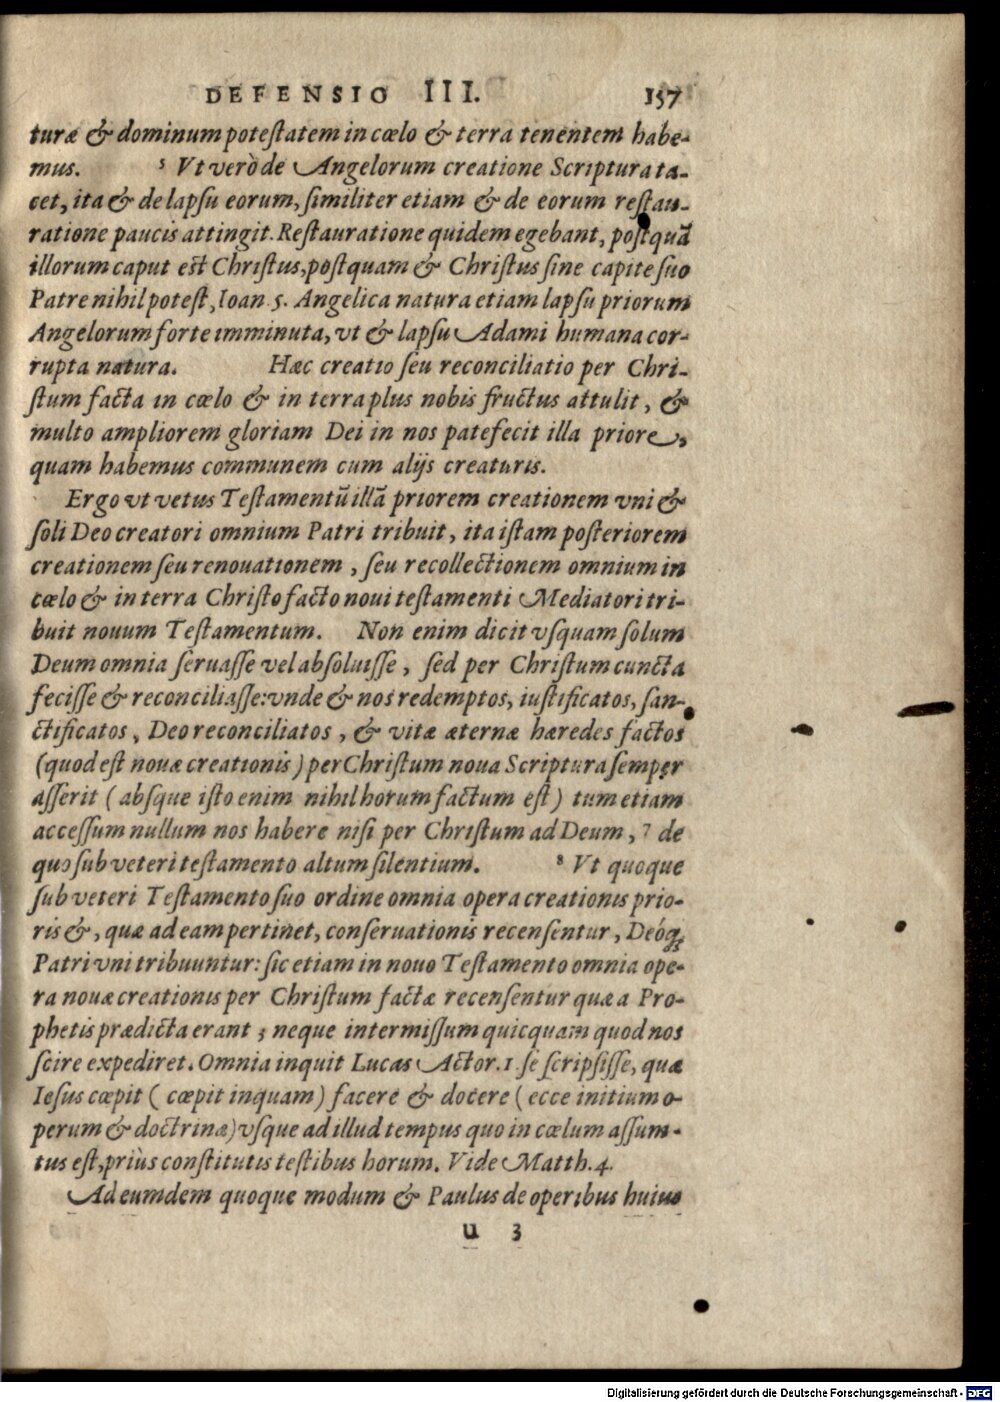 DEFENSIO III. 157
turæ & dominum potestatem in cœlo & terra tenentem habe-
mus. 5 Vt verò de Angelorum creatione Scriptura ta-
cet, ita & de lapsu eorum, similiter etiam & de eorum restau-
ratione paucis attingit. Restauratione quidem egebant, postquã
illorum caput est Christus, postquam & Christus sine capite suo
Patre nihil potest, Ioan 5. Angelica natura etiam lapsu priorum
Angelorum forte imminuta, vt & lapsu Adami humana cor-
rupta natura. Hæc creatio seu reconciliatio per Chri-
stum facta in cœlo & in terra plus nobis fructus attulit, &
multo ampliorem gloriam Dei in nos patefecit illa priore,
quam habemus communem cum alijs creaturis.
Ergo vt vetus Testamentũ illã priorem creationem vni &
soli Deo creatori omnium Patri tribuit, ita istam posteriorem
creationem seu renouationem, seu recollectionem omnium in
cœlo & in terra Christo facto noui testamenti Mediatori tri-
buit nouum Testamentum. Non enim dicit vsquam solum
Deum omnia seruasse vel absoluisse, sed per Christum cuncta
fecisse & reconciliasse: vnde & nos redemptos, iustificatos, san-
ctificatos, Deo reconciliatos, & vitæ æternæ hæredes factos
(quod est nouæ creationis) per Christum noua Scriptura semper
asserit (absque isto enim nihil horum factum est) tum etiam
accessum nullum nos habere nisi per Christum ad Deum, 7 de
quo sub veteri testamento altum silentium. 8 Vt quoque
sub veteri Testamento suo ordine omnia opera creationis prio-
ris &, quæ ad eam pertinet, conseruationis recensentur, Deóq;
Patri vni tribuuntur: sic etiam in nouo Testamento omnia ope-
ra nouæ creationis per Christum factæ recensentur quæ a Pro-
phetis prædicta erant; neque intermissum quicquam quod nos
scire expediret. Omnia inquit Lucas Actor. 1 se scripsisse, quæ
Iesus cœpit (cœpit inquam) facere & docere (ecce initium o-
perum & doctrinæ) vsque ad illud tempus quo in cœlum assum-
tus est, priùs constitutis testibus horum. Vide Matth. 4.
Ad eumdem quoque modum & Paulus de operibus huius
u 3
Digitalisierung gefördert durch die Deutsche Forschungsgemeinschaft - DFG